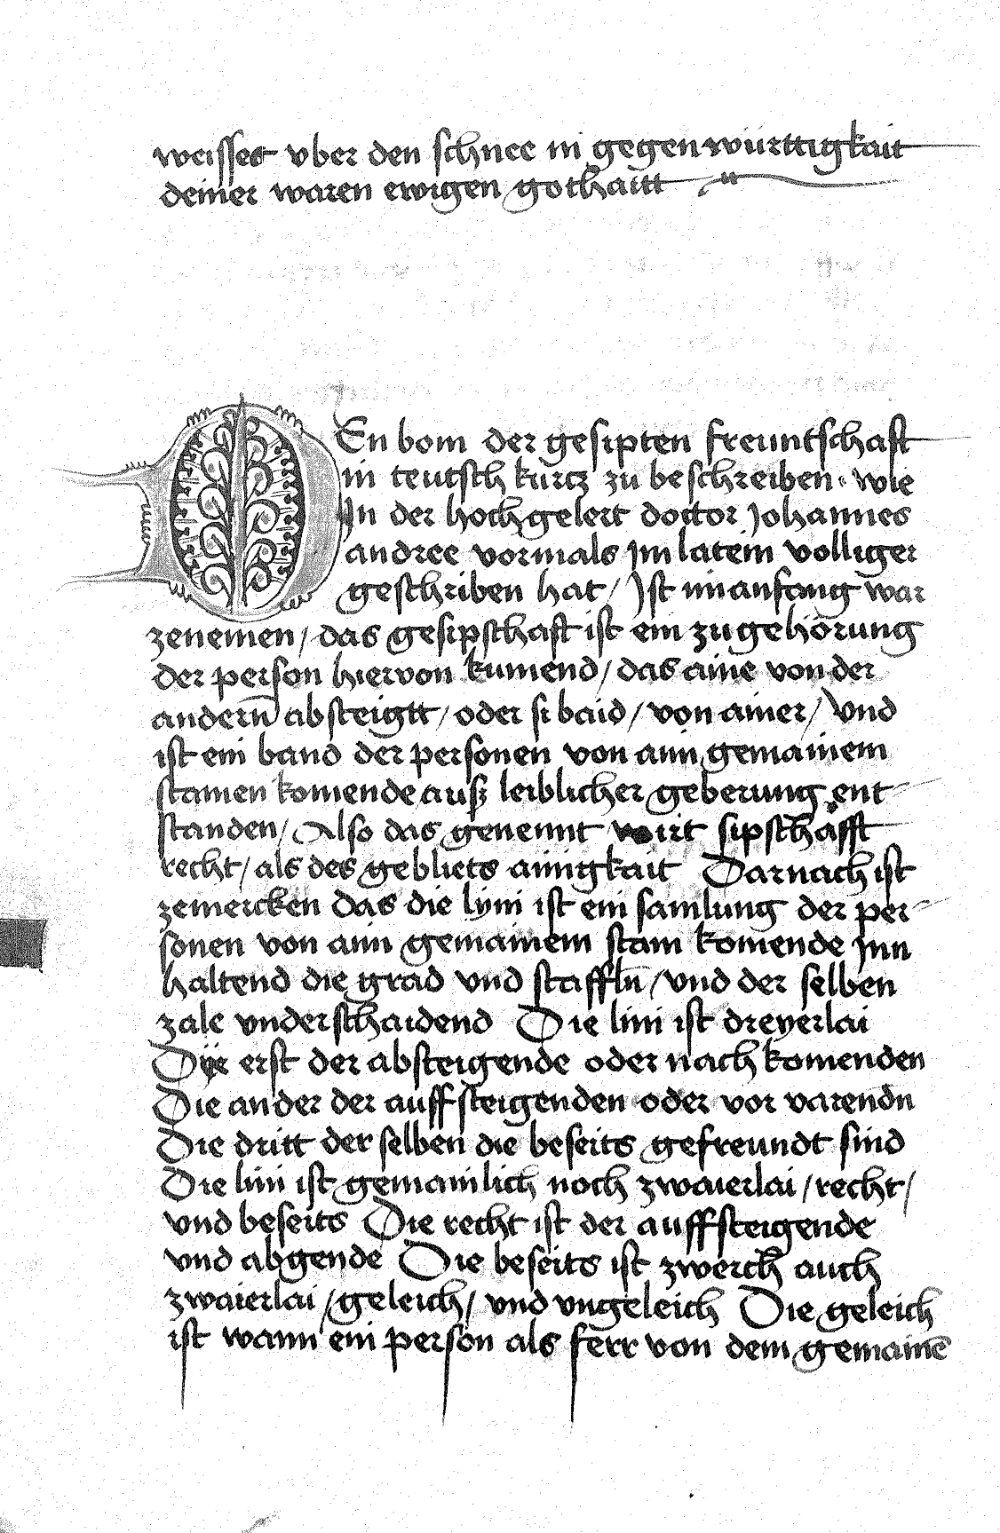 weisses vber den schnee in gegenwürttigkait
deiner waren ewigen gothaitt
DEn bom der gesipten freuntschaft
in teutsch kürcz zu beschreiben · wie
In der hochgelert doctor Johannes
andree vormals Im latein volliger
geschriben hat / Ist im anfang war
zenemen / das gesipschaft ist ein zugehörung
der person hiervon kumend / das aine von der
andern̄ absteigtt / oder si baid / von ainer / Vnd
ist ein band der personen von ain gemainem
stamen komende auß leiblicher geberung ent-
standen / Also das genennt wirt sipschafft
recht / als des gebliets ainigkait Darnach ist
zemercken das die lyni ist ein samlung der per-
sonen von ain gemainem stam komende Inn
haltend die grad vnd staffln̄ / vnd der selben
zale vnderschaidend Die lini ist dreyerlai
Dye erst der absteigende oder nach komenden
Die ander der auffsteigenden oder vor varendn
Die dritt der selben die beseits gefreundt sind
Die lini ist gemainlich noch zwaierlai / recht /
vnd beseits Die recht ist der auffsteigende
vnd abgende Die beseits ist zwerch auch
zwaierlai / geleich / vnd vngeleich Die geleich
ist wann ein person als ferr von dem gemainē